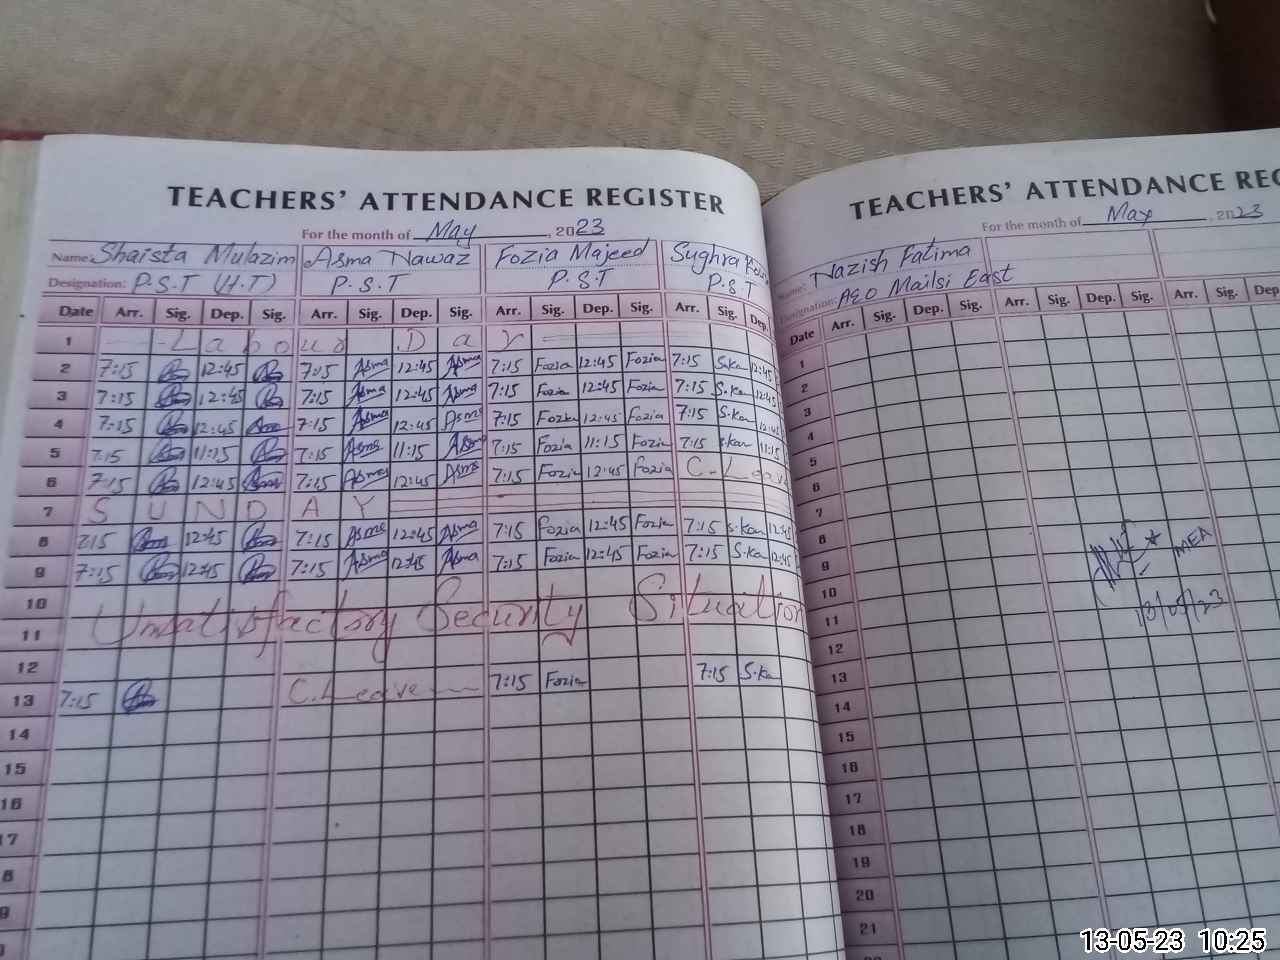 TEACHERS' ATTENDANCE REGISTER
For the month of May, 2023
Name: Shaista Mulazim Asma Nawaz Fozia Majeed Sughra
Designation: P.S.T (H.T) P.S.T P.S.T P.S.T
Date Arr. Sig. Dep. Sig. Arr. Sig. Dep. Sig. Arr. Sig. Dep. Sig. Arr. Sig. Dep.
1 Labour Day
2 7:15 12:45 7:15 Asma 12:45 Asma 7:15 Fozia 12:45 Fozia 7:15 S.Kan 12:45
3 7:15 12:45 7:15 Asma 12:45 Asma 7:15 Fozia 12:45 Fozia 7:15 S.Kan 12:45
4 7:15 12:45 7:15 Asma 12:45 Asma 7:15 Fozia 12:45 Fozia 7:15 S.Kan 12:45
5 7:15 11:15 7:15 Asma 11:15 Asma 7:15 Fozia 11:15 Fozia 7:15 S.Kan 11:15
6 7:15 12:45 7:15 Asma 12:45 Asma 7:15 Fozia 12:45 Fozia C. Leave
7 SUNDAY
8 7:15 12:45 7:15 Asma 12:45 Asma 7:15 Fozia 12:45 Fozia 7:15 S.Kan 12:45
9 7:15 12:45 7:15 Asma 12:45 Asma 7:15 Fozia 12:45 Fozia 7:15 S.Kan 12:45
10
11 Unsatisfactory Security Situation
12
13 7:15 C. Leave 7:15 Fozia 7:15 S.Kan
14
15
16
17
8
9
TEACHERS' ATTENDANCE REG
For the month of May, 2023
Name: Nazish Fatima
Designation: AEO Mailsi East
Date Arr. Sig. Dep. Sig. Arr. Sig. Dep. Sig. Arr. Sig. Dep
1
2
3
4
5
6
7
8
9
10
11
12
13
14
15
16
17
18
19
20
21
MEA
13/05/23
13-05-23 10:25